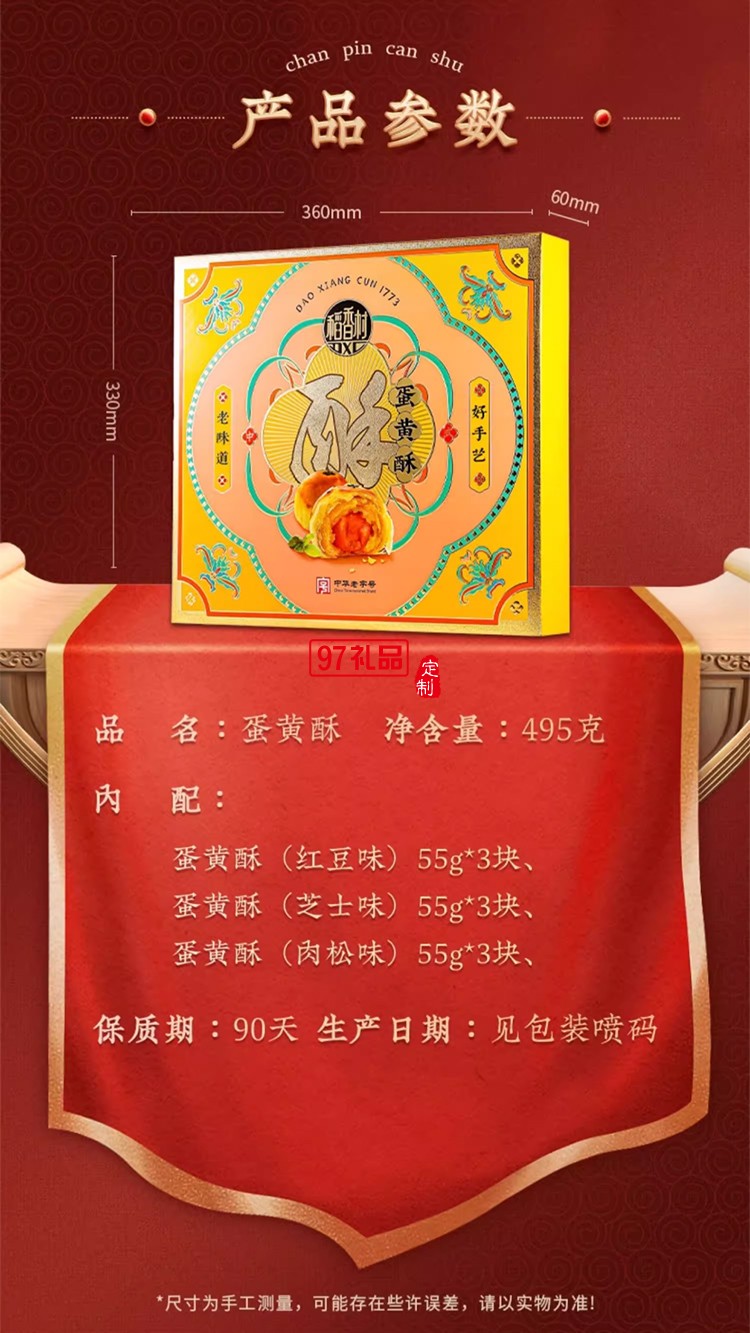 chan pin can shu
产品参数
360mm
60mm
330mm
DAO XIANG CUN 1773
稻香村
DXC
酥
蛋黄酥
老味道
好手艺
字
中华老字号
China Time-honored Brand
97礼品
定制
品 名：蛋黄酥 净含量：495克
内 配：
蛋黄酥（红豆味）55g*3块、
蛋黄酥（芝士味）55g*3块、
蛋黄酥（肉松味）55g*3块、
保质期：90天 生产日期：见包装喷码
*尺寸为手工测量，可能存在些许误差，请以实物为准!